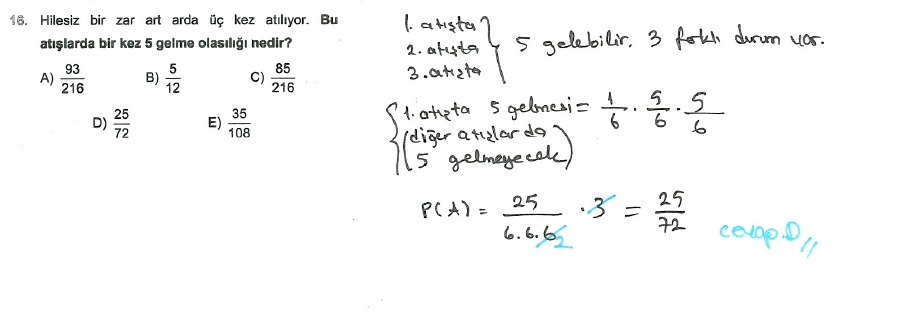 16. Hilesiz bir zar art arda üç kez atılıyor. Bu
atışlarda bir kez 5 gelme olasılığı nedir?
A) 93/216 B) 5/12 C) 85/216
D) 25/72 E) 35/108
1. atışta
2. atışta
3. atışta
5 gelebilir. 3 farklı durum var.
1. atışta 5 gelmesi = 1/6 . 5/6 . 5/6
(diğer atışlarda
5 gelmeyecek)
P(A) = 25/6.6.6 2 . 3 = 25/72
cevap.D